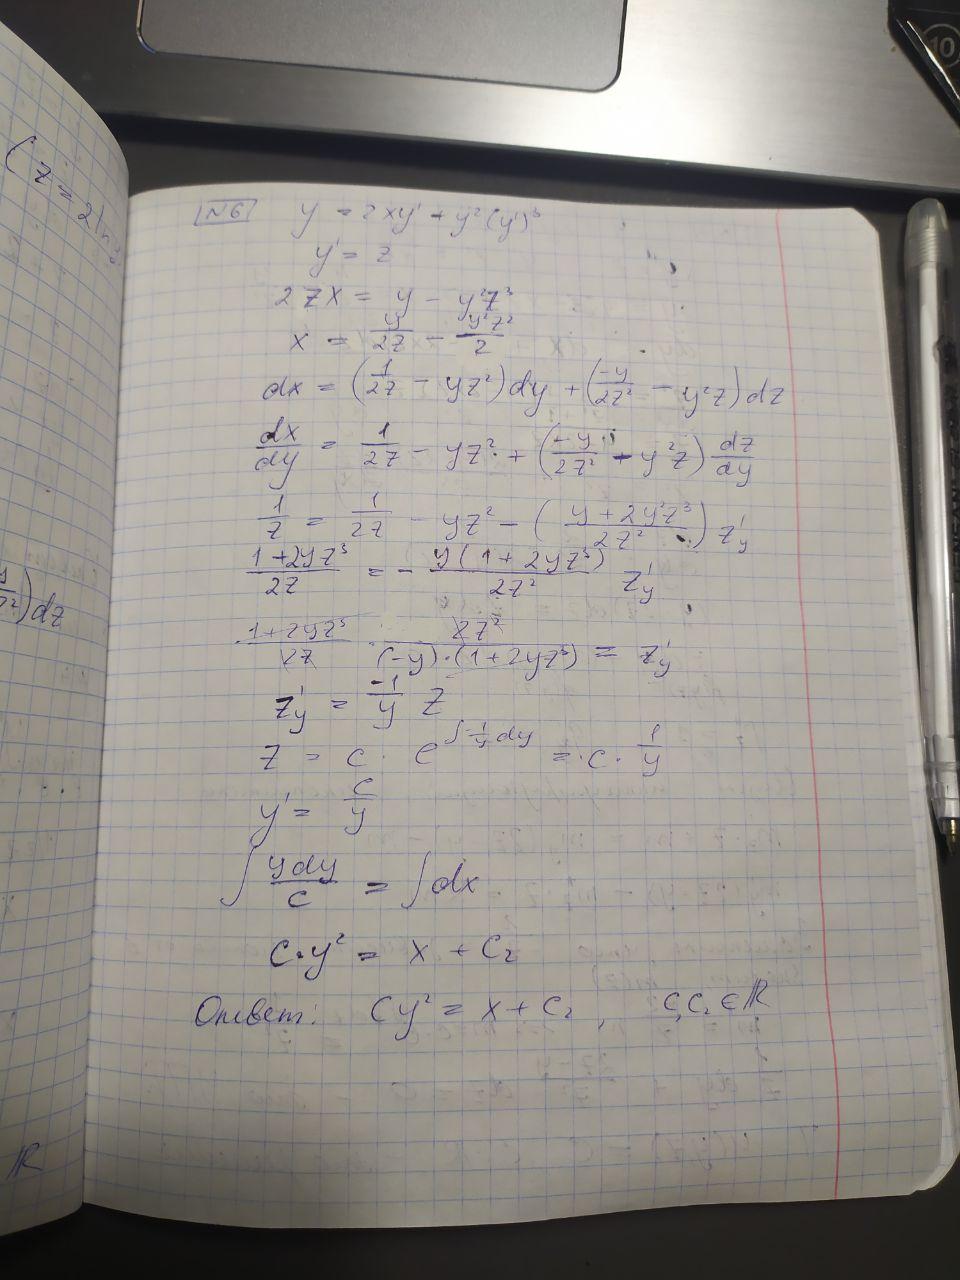 (z = 2ln
)dz
ℝ
N6 y = 2xy' + y²(y')³
y' = z
2zx = y - y²z³
x = y/2z - y²z²/2
dx = (1/2z - yz²)dy + (-y/2z² - y²z)dz
dx/dy = 1/2z - yz² + (-y/2z² - y²z) dz/dy
1/z = 1/2z - yz² - (y + 2y²z³/2z²) z'y
1+2yz³/2z = - y(1+2yz³)/2z² z'y
1+2yz³/2z · 2z²/(-y)·(1+2yz³) = z'y
z'y = -1/y z
z = c · e^∫-1/y dy = c · 1/y
y' = c/y
∫ ydy/c = ∫dx
C·y² = x + C₂
Ответ: Cy² = x + C₂, C,C₂ ∈ ℝ
10